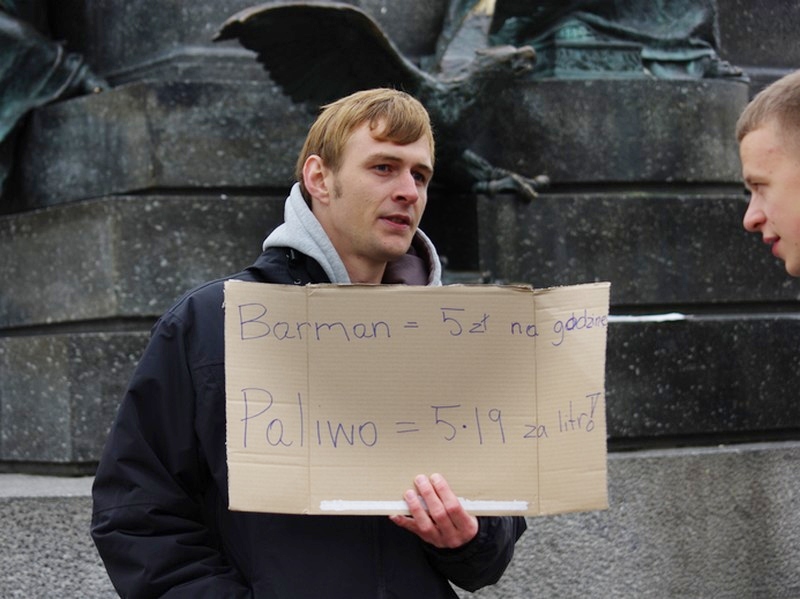 Barman = 5 zł na godzinę
Paliwo = 5.19 za litr!